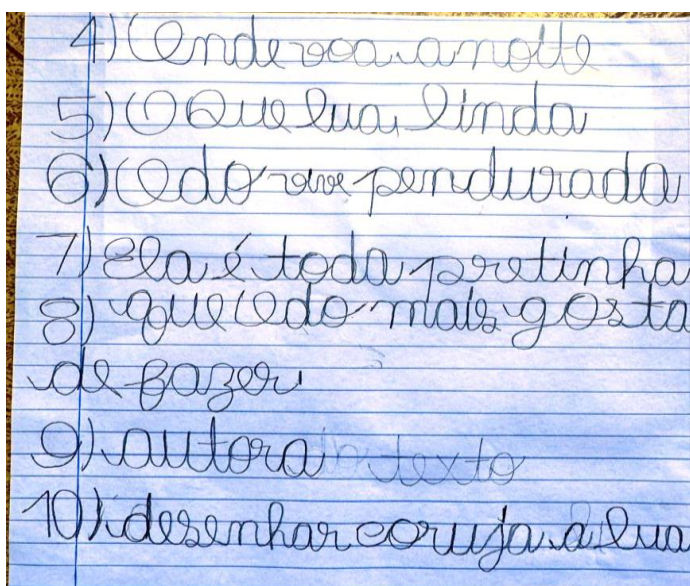 4) Onde voa a noite
5) O Que lua linda
6) Cedo vive pendurada
7) Ela é toda pretinha
8) que cedo mais gosta
de fazer
9) autora do texto
10) desenhar coruja a lua